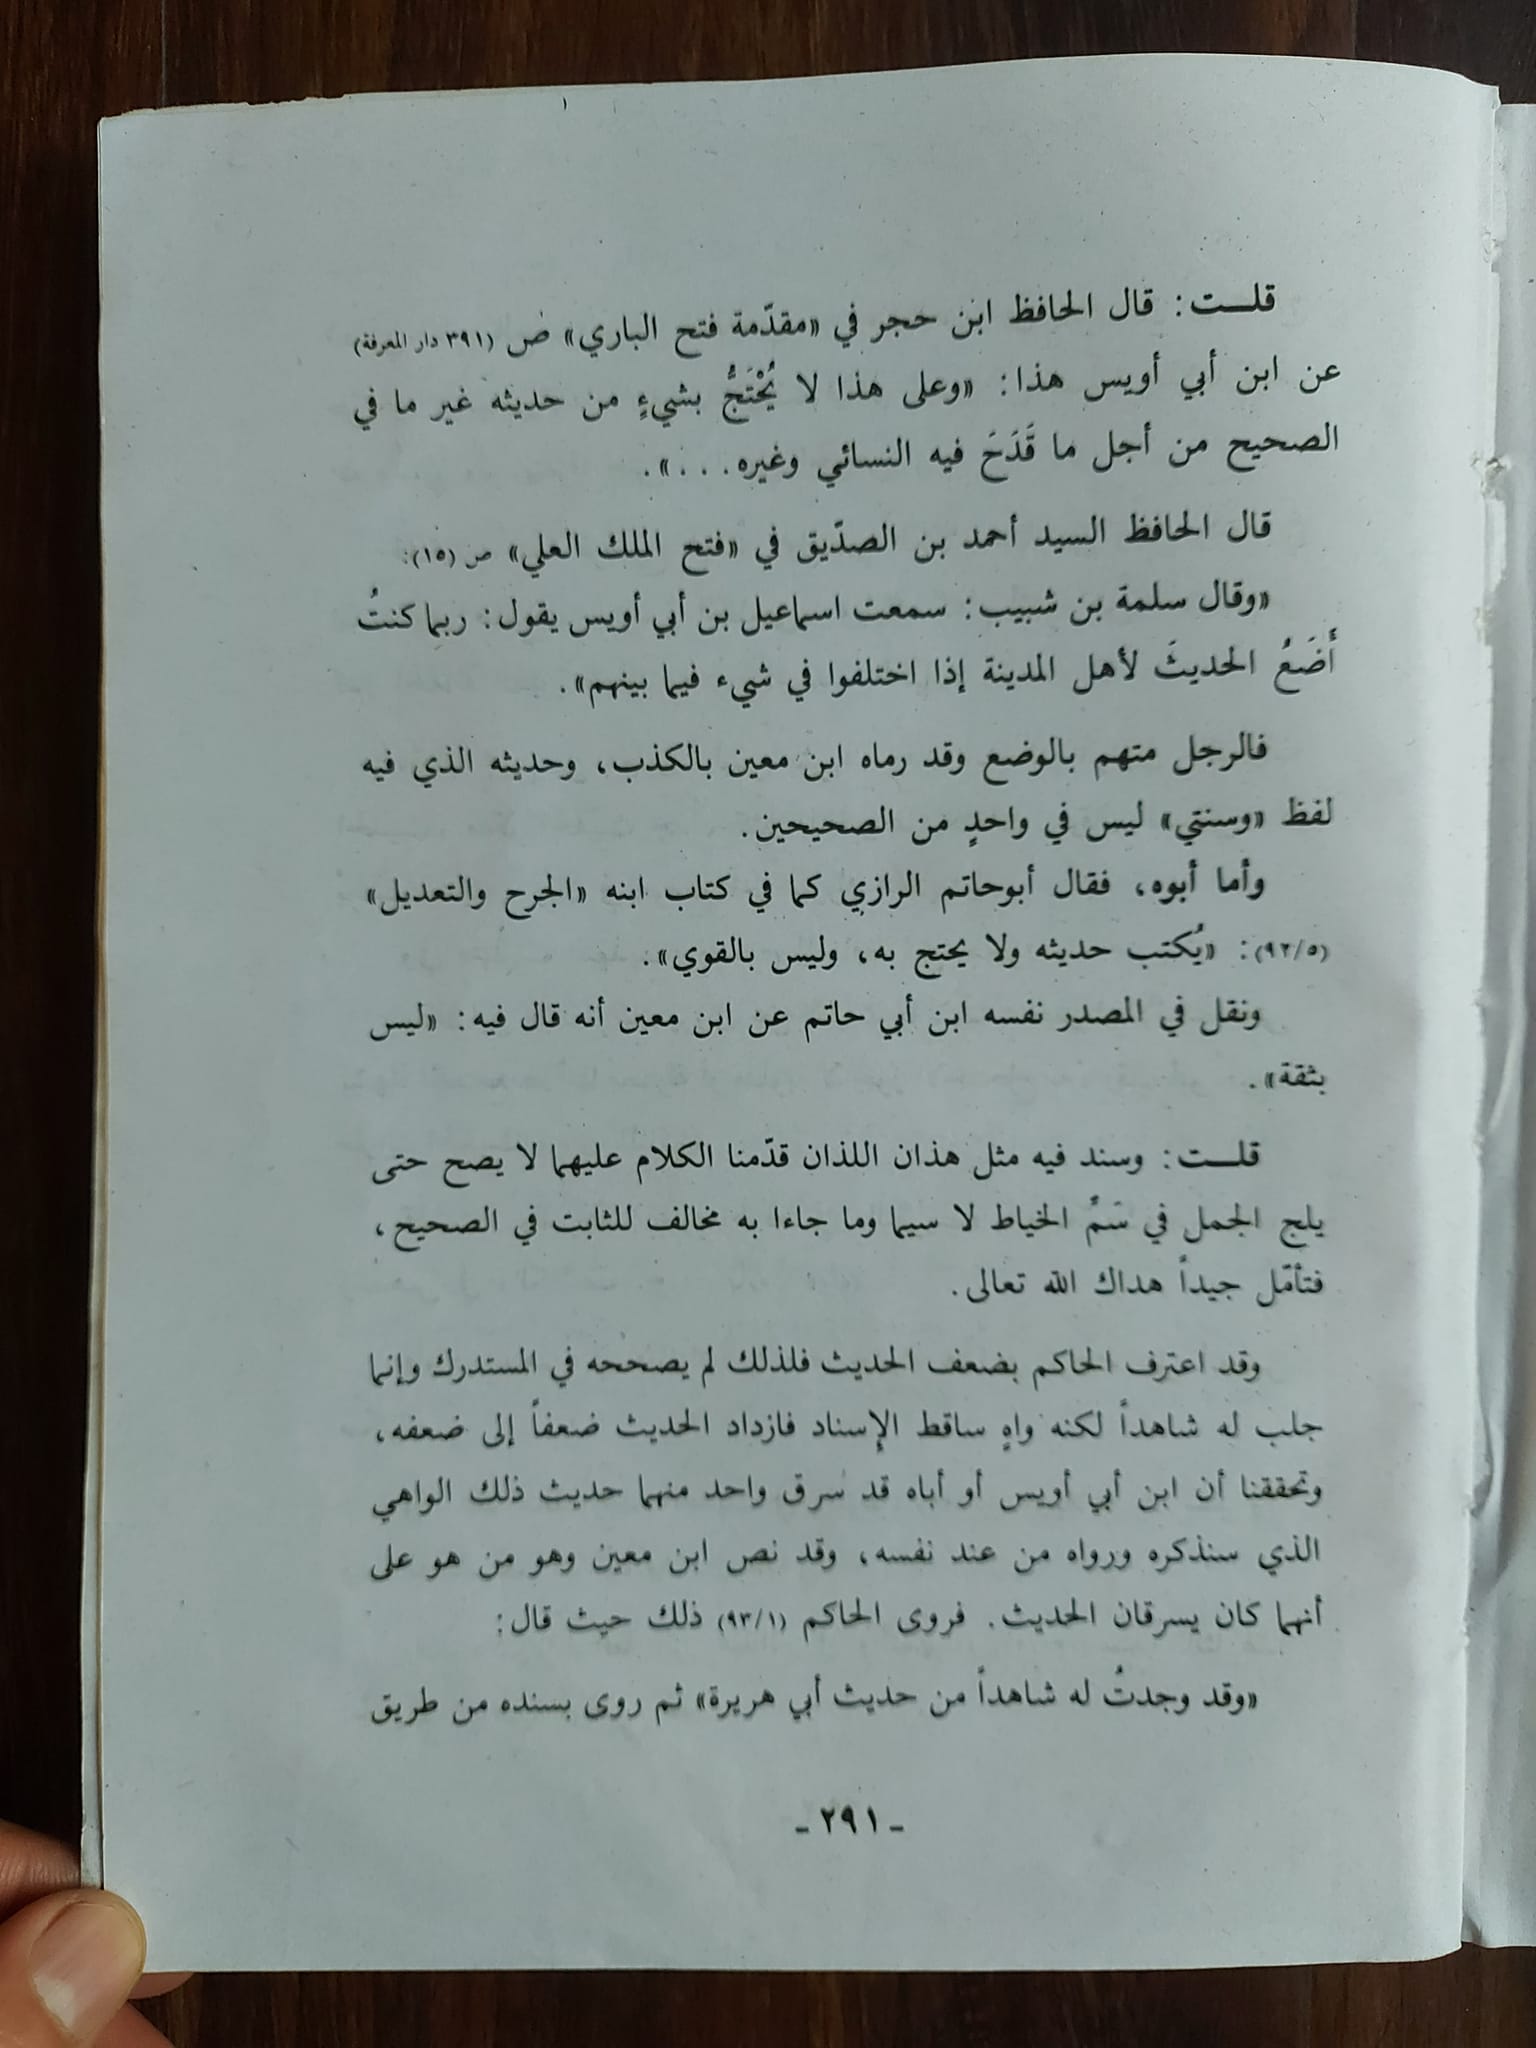 قلـــت: قال الحافظ ابن حجر في «مقدّمة فتح الباري» ص (٣٩١ دار المعرفة)
عن ابن أبي أويس هذا: «وعلى هذا لا يُحْتَجُّ بشيءٍ من حديثه غير ما في
الصحيح من أجل ما قَدَحَ فيه النسائي وغيره...».
قال الحافظ السيد أحمد بن الصدّيق في «فتح الملك العلي» ص (١٥):
«وقال سلمة بن شبيب: سمعت اسماعيل بن أبي أويس يقول: ربما كنتُ
أَضَعُ الحديثَ لأهل المدينة إذا اختلفوا في شيء فيما بينهم».
فالرجل متهم بالوضع وقد رماه ابن معين بالكذب، وحديثه الذي فيه
لفظ «وسنتي» ليس في واحدٍ من الصحيحين.
وأما أبوه، فقال أبوحاتم الرازي كما في كتاب ابنه «الجرح والتعديل»
(٩٢/٥): «يُكتب حديثه ولا يحتج به، وليس بالقوي».
ونقل في المصدر نفسه ابن أبي حاتم عن ابن معين أنه قال فيه: «ليس
بثقة».
قلـــت: وسند فيه مثل هذان اللذان قدّمنا الكلام عليهما لا يصح حتى
يلج الجمل في سَمِّ الخياط لا سيما وما جاءا به مخالف للثابت في الصحيح،
فتأمّل جيداً هداك الله تعالى.
وقد اعترف الحاكم بضعف الحديث فلذلك لم يصححه في المستدرك وإنما
جلب له شاهداً لكنه واهٍ ساقط الإسناد فازداد الحديث ضعفاً إلى ضعفه،
وتحققنا أن ابن أبي أويس أو أباه قد سرق واحد منهما حديث ذلك الواهي
الذي سنذكره ورواه من عند نفسه، وقد نص ابن معين وهو من هو على
أنهما كان يسرقان الحديث. فروى الحاكم (٩٣/١) ذلك حيث قال:
«وقد وجدتُ له شاهداً من حديث أبي هريرة» ثم روى بسنده من طريق
- ٢٩١ -